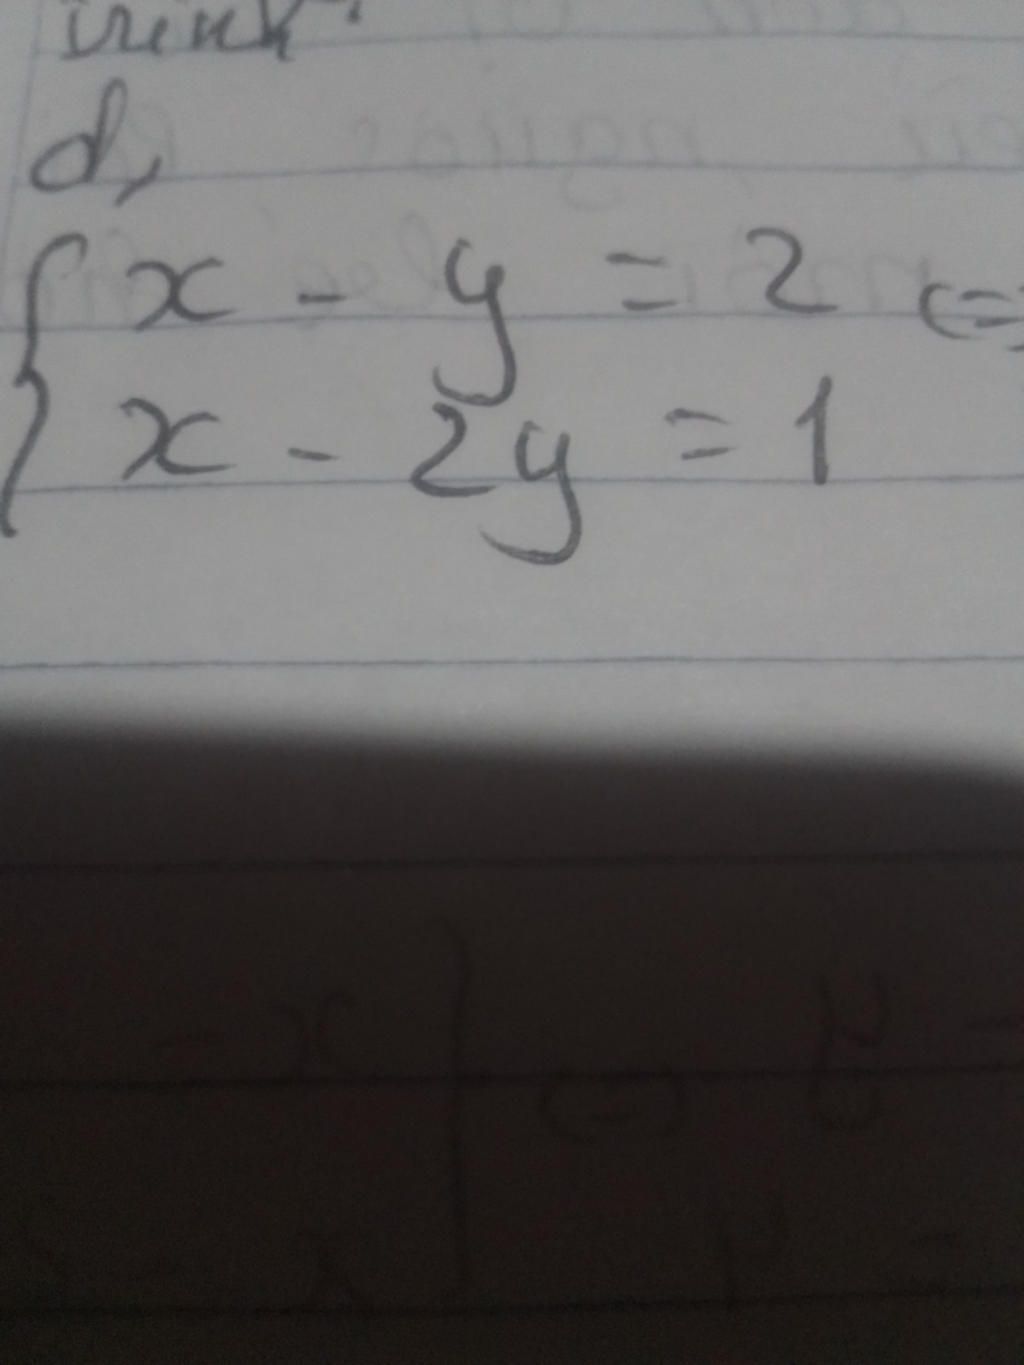 d,
x - y = 2 <=>
x - 2y = 1